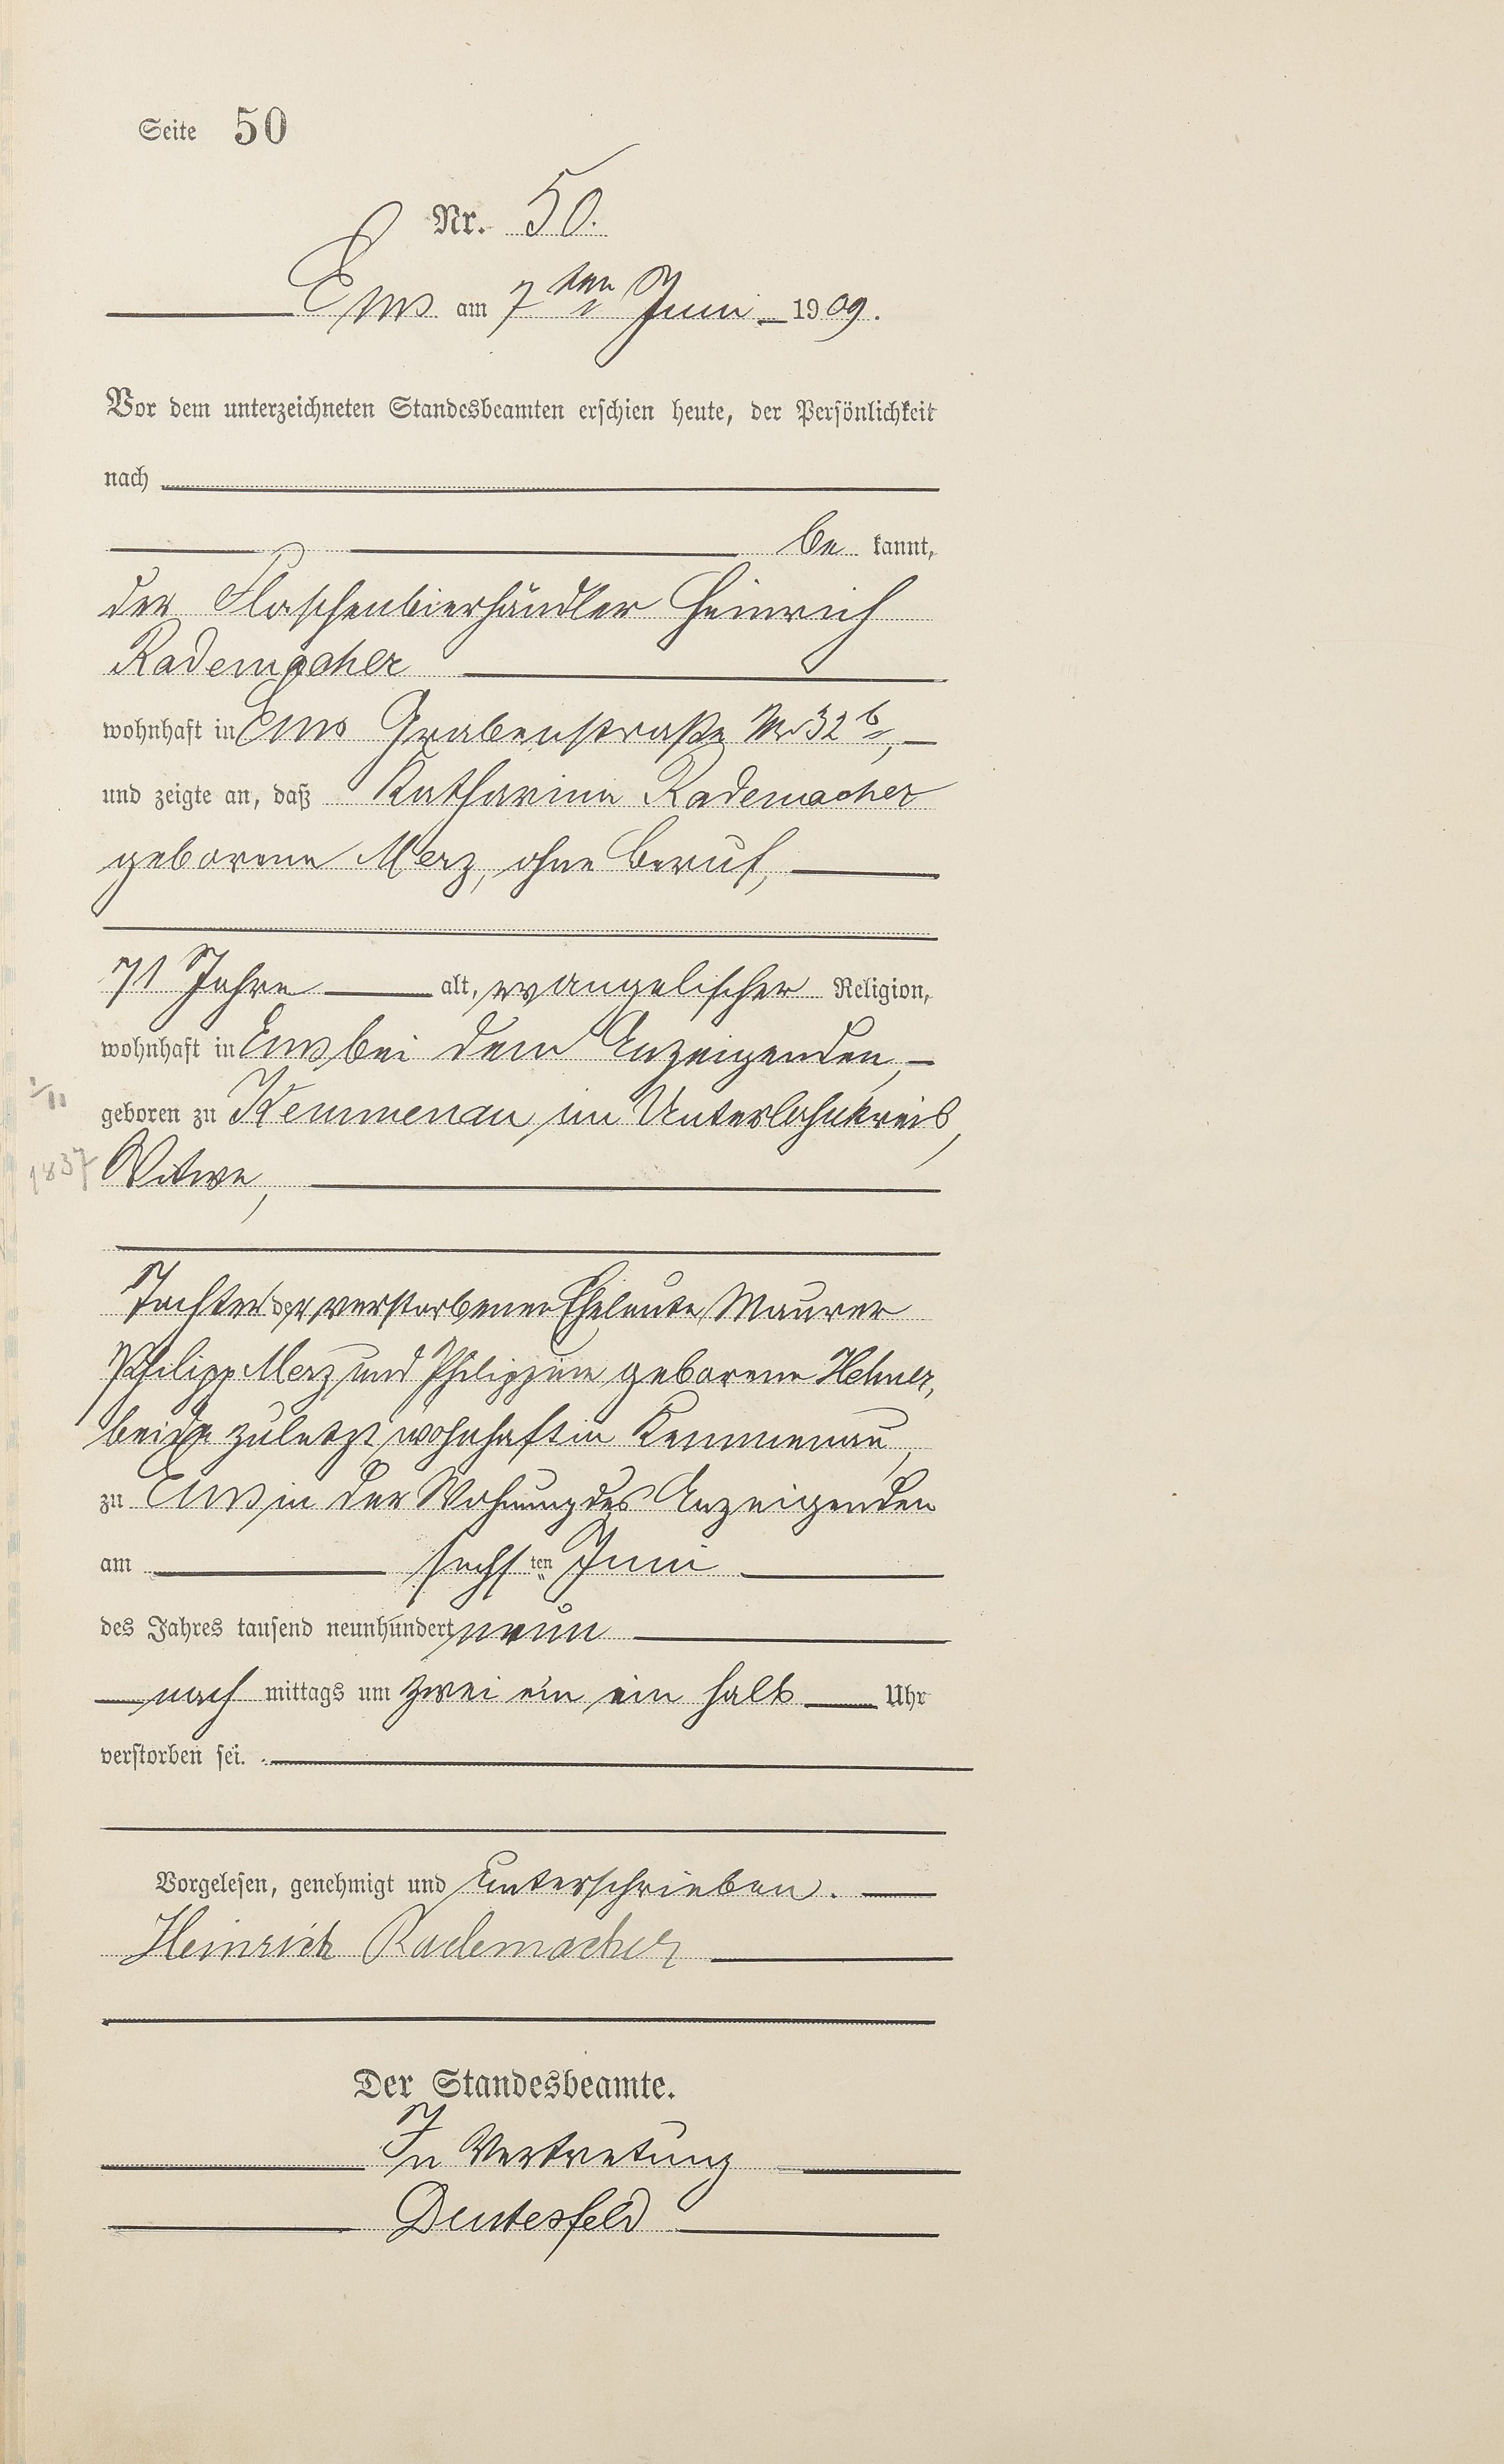 Seite 50
Nr. 50.
Ems am 7ten Juni 1909.
Vor dem unterzeichneten Standesbeamten erschien heute, der Persönlichkeit
nach
be kannt,
der Flaschenbierhändler Heinrich
Rademacher
wohnhaft in Ems Grabenstraße Nr 32b,
und zeigte an, daß Katharina Rademacher
geborene Merz, ohne Beruf,
71 Jahre alt, evangelischer Religion,
wohnhaft in Ems bei dem Anzeigenden,
geboren zu Kemmenau im Unterlahnkreis,
1837 Witwe,
Tochter der verstorbenen Eheleute Maurer
Philipp Merz und Philippine geborene Hehner,
beide zuletzt wohnhaft in Kemmenau,
zu Ems in der Wohnung des Anzeigenden
am sechsten Juni
des Jahres tausend neunhundert neun
nach mittags um zwei ein ein halb Uhr
verstorben sei.
Vorgelesen, genehmigt und unterschrieben.
Heinrich Rademacher
Der Standesbeamte.
In Vertretung
Deutesfeld